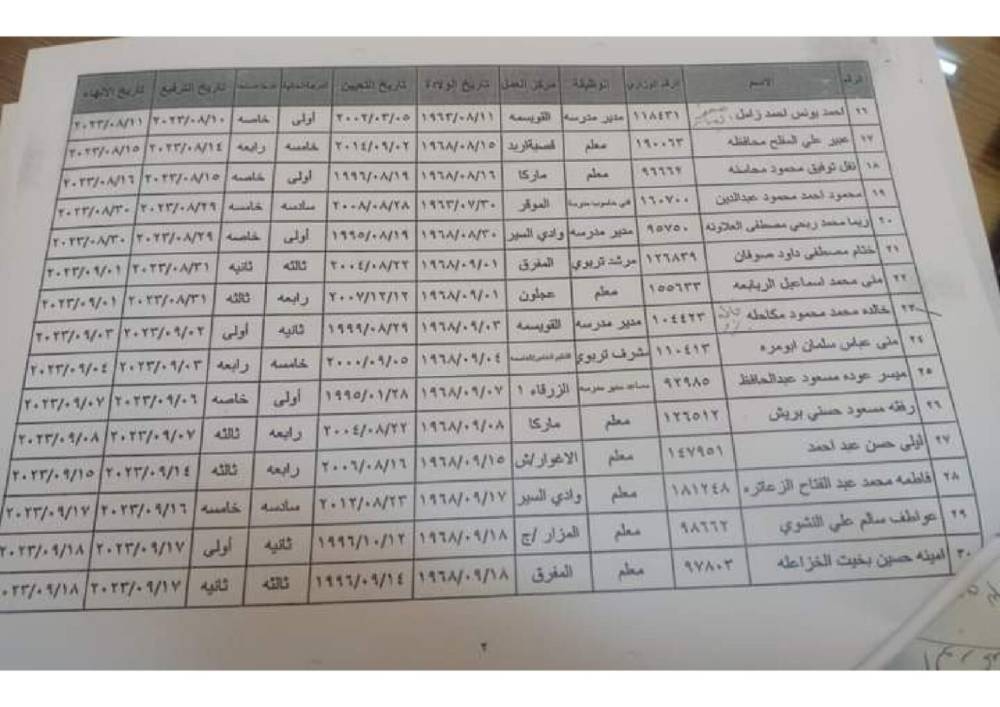 الرقم الاسم الرقم الوزاري الوظيفة مركز العمل تاريخ الولادة تاريخ التعيين الدرجة الحالية تاريخ الترفيع تاريخ الانهاء
١٦ احمد يونس احمد زامل ١١٨٤٣١ مدير مدرسه القويسمه ١٩٦٣/٠٨/١١ ٢٠٠٢/٠٣/٠٥ أولى خاصه ٢٠٢٣/٠٨/١٠ ٢٠٢٣/٠٨/١١
١٧ عبير علي المفلح محافظه ١٩٠٠٦٣ معلم قصبة اربد ١٩٦٨/٠٨/١٥ ٢٠١٤/٠٩/٠٢ خامسه رابعه ٢٠٢٣/٠٨/١٤ ٢٠٢٣/٠٨/١٥
١٨ نفل توفيق محمود محاسنه ٩٦٦٦٢ معلم ماركا ١٩٦٨/٠٨/١٦ ١٩٩٦/٠٨/١٩ أولى خاصه ٢٠٢٣/٠٨/١٥ ٢٠٢٣/٠٨/١٦
١٩ محمود احمد محمود عبدالدين ١٦٠٧٠٠ فني حاسوب مدرسة الموقر ١٩٦٣/٠٧/٣٠ ٢٠٠٨/٠٨/٢٨ سادسه خامسه ٢٠٢٣/٠٨/٢٩ ٢٠٢٣/٠٨/٣٠
٢٠ ريما محمد ربحي مصطفى العلاونه ٩٥٧٥٠ مدير مدرسه وادي السير ١٩٦٨/٠٨/٣٠ ١٩٩٥/٠٨/١٩ أولى خاصه ٢٠٢٣/٠٨/٢٩ ٢٠٢٣/٠٨/٣٠
٢١ ختام مصطفى داود صوفان ١٢٦٨٣٩ مرشد تربوي المفرق ١٩٦٨/٠٩/٠١ ٢٠٠٤/٠٨/٢٢ ثالثه ثانيه ٢٠٢٣/٠٨/٣١ ٢٠٢٣/٠٩/٠١
٢٢ منى محمد اسماعيل الربابعه ١٥٥٦٣٣ معلم عجلون ١٩٦٨/٠٩/٠١ ٢٠٠٧/١٢/١٢ رابعه ثالثه ٢٠٢٣/٠٨/٣١ ٢٠٢٣/٠٩/٠١
٢٣ خالده محمد محمود مكاحله ١٠٤٤٢٣ مدير مدرسه القويسمه ١٩٦٨/٠٩/٠٣ ١٩٩٩/٠٨/٢٩ ثانيه أولى ٢٠٢٣/٠٩/٠٢ ٢٠٢٣/٠٩/٠٣
٢٤ منى عباس سلمان ابومره ١١٠٤١٣ مشرف تربوي ١٩٦٨/٠٩/٠٤ ٢٠٠٠/٠٩/٠٥ خامسه رابعه ٢٠٢٣/٠٩/٠٣ ٢٠٢٣/٠٩/٠٤
٢٥ ميسر عوده مسعود عبدالحافظ ٩٢٩٨٥ مساعد مدير مدرسه الزرقاء ١ ١٩٦٨/٠٩/٠٧ ١٩٩٥/٠١/٢٨ أولى خاصه ٢٠٢٣/٠٩/٠٦ ٢٠٢٣/٠٩/٠٧
٢٦ رفقه مسعود حسني بريش ١٢٦٥١٢ معلم ماركا ١٩٦٨/٠٩/٠٨ ٢٠٠٤/٠٨/٢٢ رابعه ثالثه ٢٠٢٣/٠٩/٠٧ ٢٠٢٣/٠٩/٠٨
٢٧ ليلى حسن عبد احمد ١٤٧٩٥١ معلم الاغوار/ش ١٩٦٨/٠٩/١٥ ٢٠٠٦/٠٨/١٦ رابعه ثالثه ٢٠٢٣/٠٩/١٤ ٢٠٢٣/٠٩/١٥
٢٨ فاطمه محمد عبد الفتاح الزعاتره ١٨١٢٤٨ معلم وادي السير ١٩٦٨/٠٩/١٧ ٢٠١٢/٠٨/٢٣ سادسه خامسه ٢٠٢٣/٠٩/١٦ ٢٠٢٣/٠٩/١٧
٢٩ عواطف سالم علي النشوي ٩٨٦٦٢ معلم المزار /ج ١٩٦٨/٠٩/١٨ ١٩٩٦/١٠/١٢ ثانيه أولى ٢٠٢٣/٠٩/١٧ ٢٠٢٣/٠٩/١٨
٣٠ امينه حسين بخيت الخزاعله ٩٧٨٠٣ معلم المفرق ١٩٦٨/٠٩/١٨ ١٩٩٦/٠٩/١٤ ثالثه ثانيه ٢٠٢٣/٠٩/١٧ ٢٠٢٣/٠٩/١٨
٢